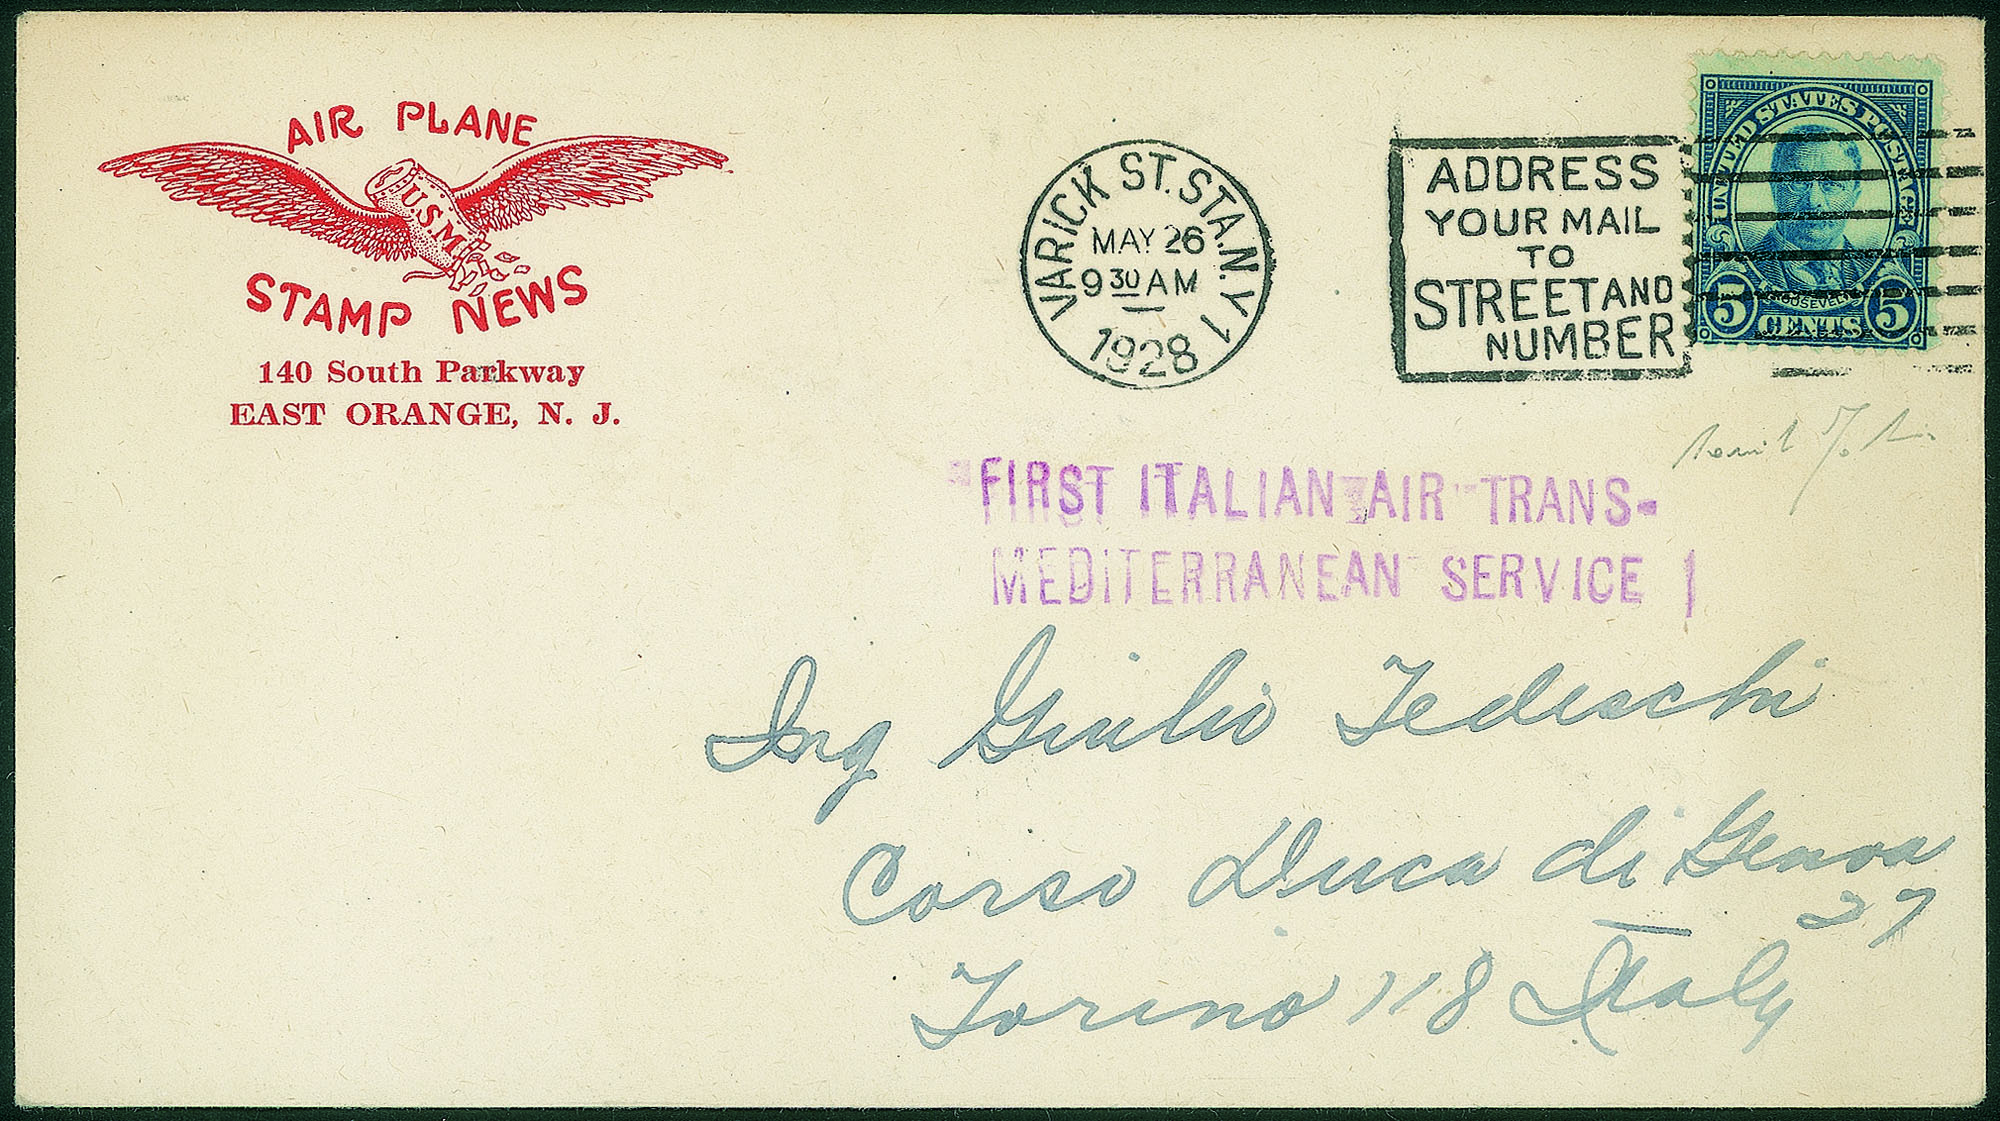 AIR PLANE
U.S.M.
STAMP NEWS
140 South Parkway
EAST ORANGE, N. J.
VARICK ST. STA. N.Y. 1
MAY 26
9 30 AM
1928
ADDRESS
YOUR MAIL
TO
STREET AND
NUMBER
UNITED STATES POSTAGE
ROOSEVELT
5 CENTS 5
"FIRST ITALIAN AIR TRANS-
MEDITERRANEAN SERVICE
Ing Giulio Tedeschi
Corso Duca di Genova
27
Torino 118 Italy